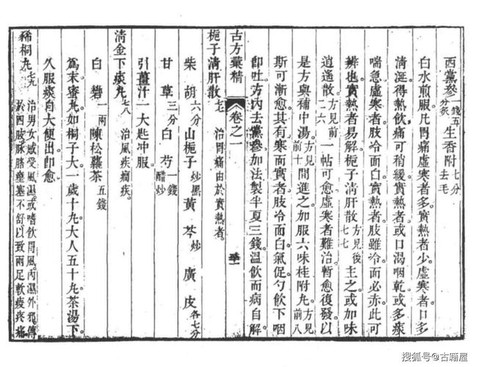 西黨參一錢五分炙生香附七分去毛
白水煎服凡胃痛虛寒者多實熱者少虛寒者口多
清涎得熱飲痛可稍緩實熱者或口渴咽乾或多痰
喘急虛寒者肢冷而白實熱者肢雖冷而必赤此可
辨也實熱者易解梔子清肝散方見後七七主之或加味
逍遙散方見前二六一帖可愈虛寒者難治暫愈復發以
是方與補中湯方見前十間進之加服六味桂附丸方見前八
斯可漸愈其有寒而實者肢冷而白氣促勺飲下咽
即吐方內去黨參加法製半夏三錢溫飲而病自解
古方彙精 卷之一
梔子清肝散七七 治胃痛由於實熱者
柴胡六分山梔子炒黑黃芩炒廣皮各七分
甘草三分白芍一錢醋炒
引薑汁一大匙冲服
清金下痰丸七八 治風痰癇疾
白礬一兩陳松蘿茶五錢
為末蜜丸如桐子大一歲十丸大人五十丸茶湯下
久服痰自大便出即愈
豨桐丸七九 治男女感受風濕或嗜飲冒風內濕外邪傳
於四肢脈絡壅塞不舒以致兩足軟痠疼痛
搜狐号@古籍屋